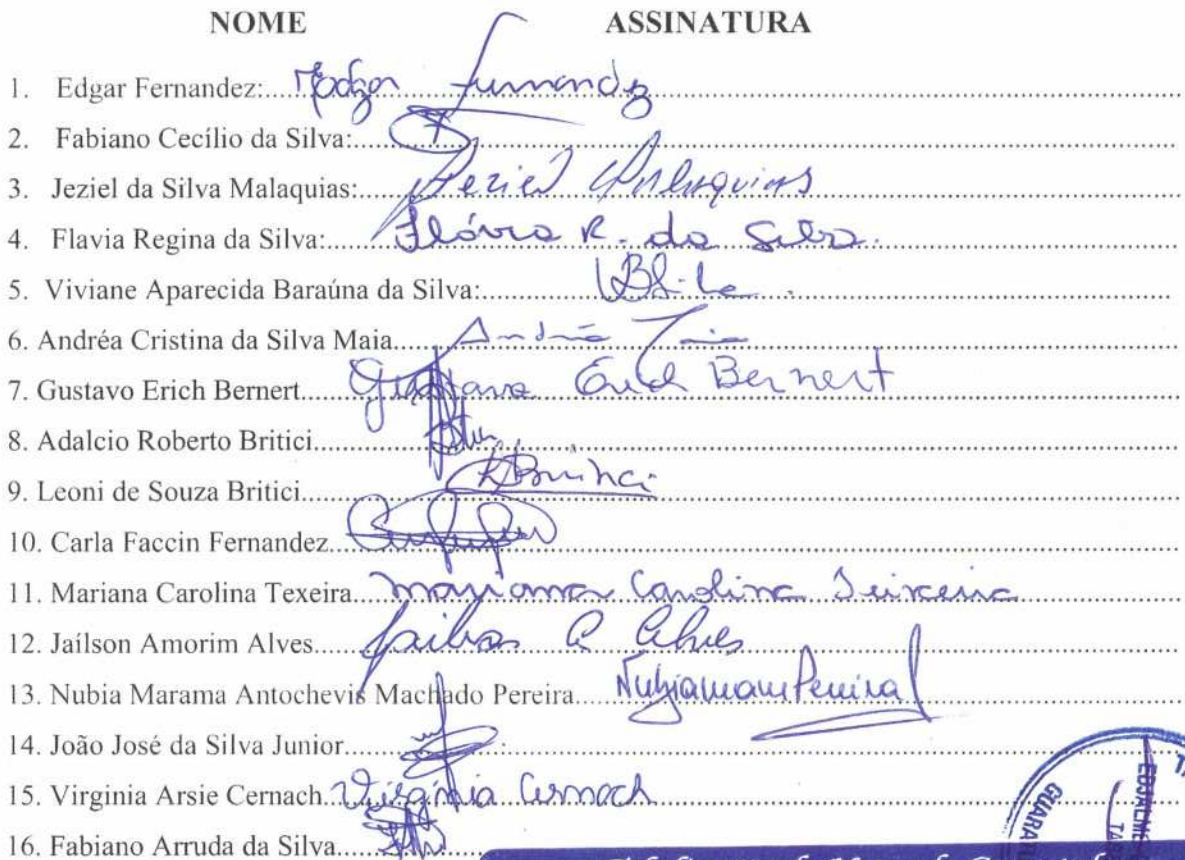 NOME ASSINATURA
1. Edgar Fernandez:.... Edgar Fernandez
2. Fabiano Cecílio da Silva:....
3. Jeziel da Silva Malaquias:.... Jeziel Malaquias
4. Flavia Regina da Silva:.... Flávia R. da Silva.
5. Viviane Aparecida Baraúna da Silva:....
6. Andréa Cristina da Silva Maia.... Andréa Maia
7. Gustavo Erich Bernert.... Gustavo Erich Bernert
8. Adalcio Roberto Britici....
9. Leoni de Souza Britici....
10. Carla Faccin Fernandez....
11. Mariana Carolina Texeira.... Mariana Carolina Teixeira
12. Jaílson Amorim Alves.... Jailson A Alves
13. Nubia Marama Antochevis Machado Pereira.... Nubiamam Pereira
14. João José da Silva Junior....
15. Virginia Arsie Cernach Virginia Cernach
16. Fabiano Arruda da Silva....